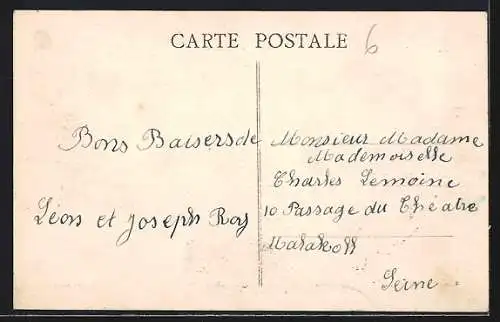 CARTE POSTALE
6
Bons Baisers de
Léon et Joseph Roy
Monsieur Madame
Mademoiselle
Charles Lemoine
10 Passage du Théatre
Malakoff
Seine